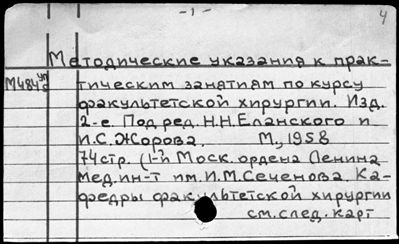 - 1 -
4
Методические указания к прак-
М484уп тическим занятиям по курсу
факультетской хирургии. Изд.
2-е. Под ред. Н.Н. Еланского и
И.С. Жорова. М., 1958
74 стр. (1-й Моск. ордена Ленина
мед. ин-т им. И.М. Сеченова. Ка-
федры факультетской хирургии
см. след. карт